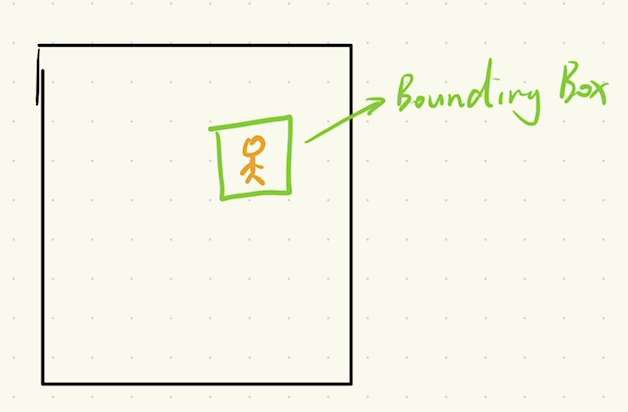 Bounding Box